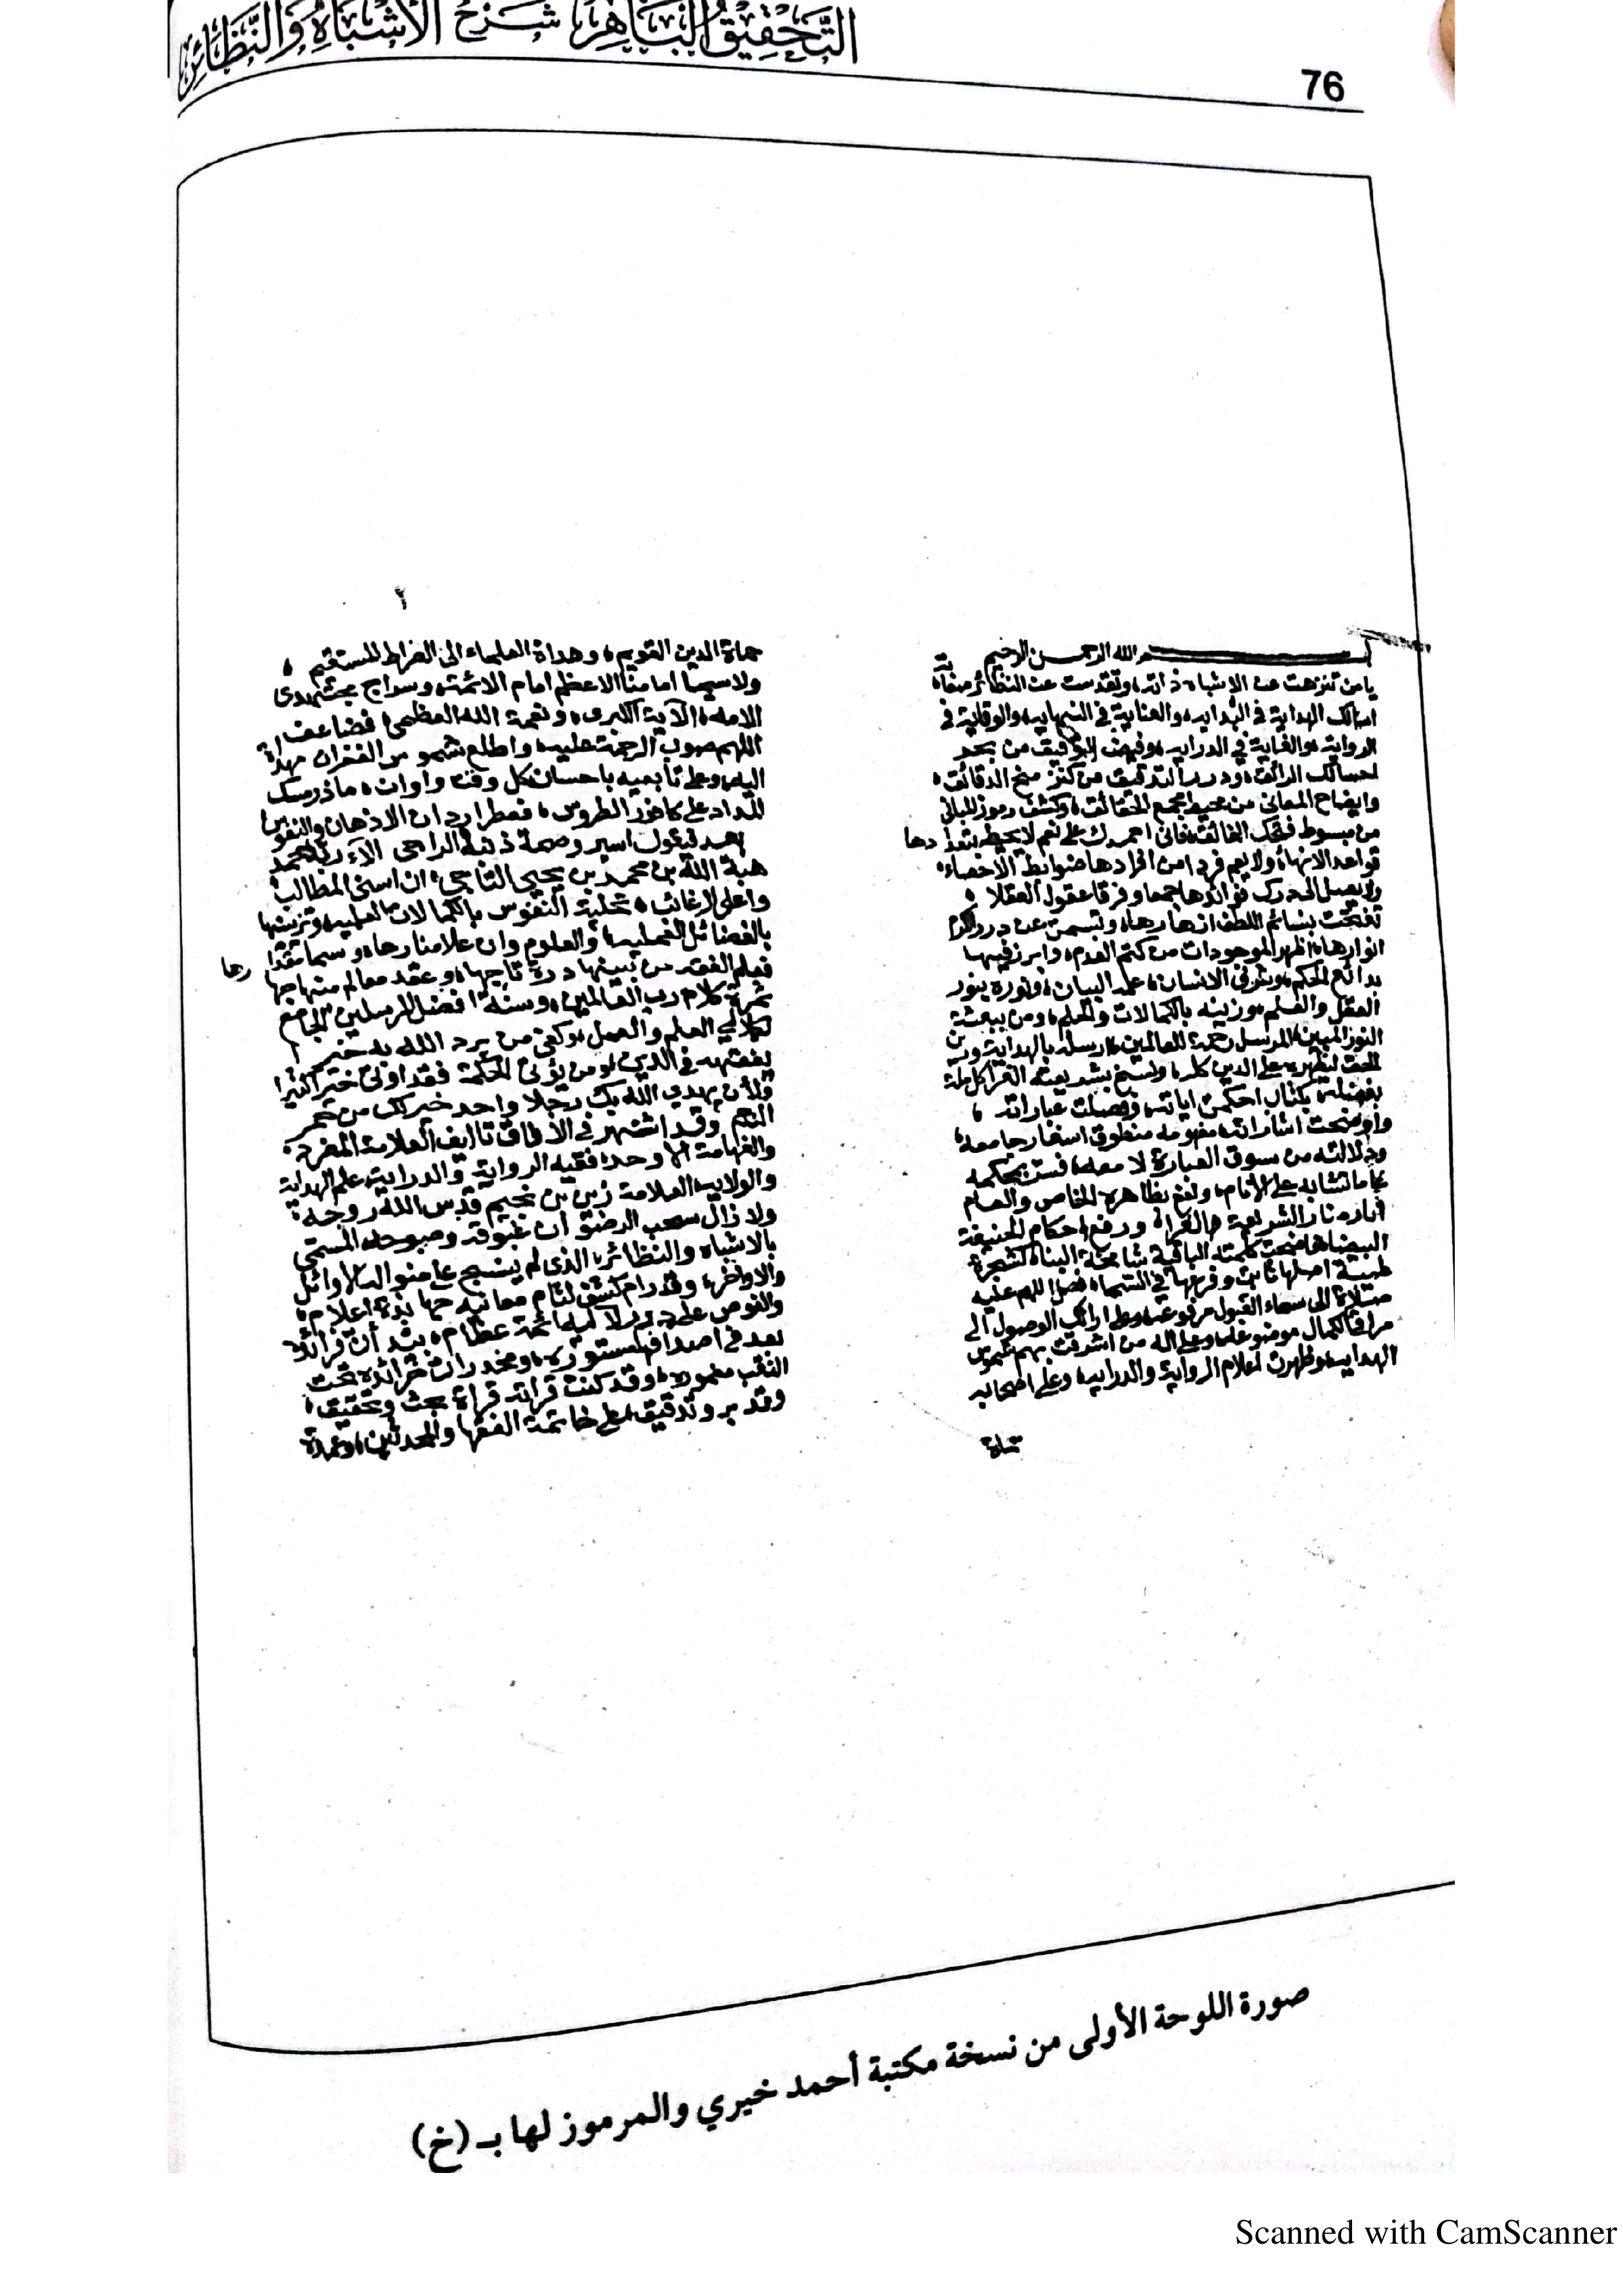 التحقيق الباهر شرح الأشباه والنظائر
76
بسم الله الرحمن الرحيم
يا من تنزهت عن الاشباه ذاته، وتقدست عن النظائر صفاته
اسالك الهداية في البداية، والعناية في النهاية، والوقاية في
الرواية، والغاية في الدراية، وفيض من بحر
احسانك الرائق، ودرر التدقيق من كنز منح الدقائق،
وايضاح المعاني من محيط مجمع الحقائق، وكشف رموز المباني
من مبسوط فاني احمدك على نعم لا يحيط بتعدادها
قواعد الانهاء، ولا يعم فردا من افرادها ضوابط الاحصاء،
ولا يصل الى درك فوائدها جمعا وفرقا عقول العقلا،
تفتحت بنسائم اللطف ازهارها، وتبسمت عن درر
انوارها، اظهر الموجودات من كتم العدم، وابرز فيها
بدائع الحكم، وشرف الانسان، علمه البيان، ونوره بنور
العقل والفهم، وزينه بالكمالات والعلم، ومن ببعثة
النور المبين، المرسل رحمة للعالمين، ارسله بالهداية ودين
الحق ليظهره على الدين كله، ونسخ بشريعته الغرا كل ملة
بفضله، بكتاب احكمت اياته، وفصلت عباراته،
واوضحت اشاراته، مفهومه منطوق اسفار جامعه،
ودلالته من سوق العبارة لامعه، فسر بمحكمه
ما تشابه على الانام، وعم بظاهره الخاص والعام
انار منار الشريعة الغرا، ورفع احكام الحنيفية
البيضا، فاضحت كلمته الباقية شامخة البنا، كشجرة
طيبة اصلها ثابت وفرعها في السماء، فصل اللهم عليه
صلاة الى سماء القبول مرفوعة، وعلى ارائك الوصول الى
مراقي الكمال موضوعة، وعلى اله من اشرقت بهم شموس
الهداية، وظهرت اعلام الرواية والدراية، وعلى اصحابه
حماة
٢
حماة الدين القويم، وهداة العلماء الى الصراط المستقيم،
ولا سيما امامنا الاعظم امام الائمة، وسراج مجتهدي
الامة، الآية الكبرى، ونعمة الله العظمى، فضاعف
اللهم صوب الرحمة عليه، واطلع شموس الغفران مهداة
اليه، وعلى تابعيه باحسان كل وقت واوان، ما ذر مسك
المداد على كافور الطروس، فعطر اردان الاذهان والنفوس
وبعد فيقول اسير وصمة ذنبه الراجي الآء ربه محمد
هبة الله بن محمد بن يحيى التاجي، ان اسنى المطالب
واعلى الرغائب، تحلية النفوس بالكمالات العلمية، وتزيينها
بالفضائل العملية، والعلوم وان علا منارها، وسما مقدارها
فعلم الفقه من بينها درة تاجها، وعقد معالم منهاجها
ثمرة كلام رب العالمين، وسنة افضل المرسلين، الجامع
لكمالي العلم والعمل، وكفى من يرد الله به خيرا
يفقهه في الدين، ومن يؤتى الحكمة فقد اوتي خيرا كثيرا
ولأن يهدي الله بك رجلا واحدا خير لك من حمر
النعم، وقد اشتهر في الآفاق تاليف العلامة المفرد،
والفهامة الاوحد، فقيه الرواية والدراية، علم الهداية
والولاية، العلامة زين بن نجيم قدس الله روحه،
ولا زال سحب الرضوان غبوقه وصبوحه، المسمى
بالاشباه والنظائر، الذي لم ينسج على منواله الاوائل
والاواخر، وقد رام كشف لثام معانيه جهابذة اعلام،
والغوص على درر لآليه ائمة عظام، بيد أن فرائده
بعد في اصدافها مستورة، ومخدرات خرائده تحت
النقب مغمورة، وقد كنت قراته قراة بحث وتحقيق،
وتدبر وتدقيق، على خاتمة الفقها والمحدثين، وعمدة
صورة اللوحة الأولى من نسخة مكتبة أحمد خيري والمرموز لها بـ (خ)
Scanned with CamScanner